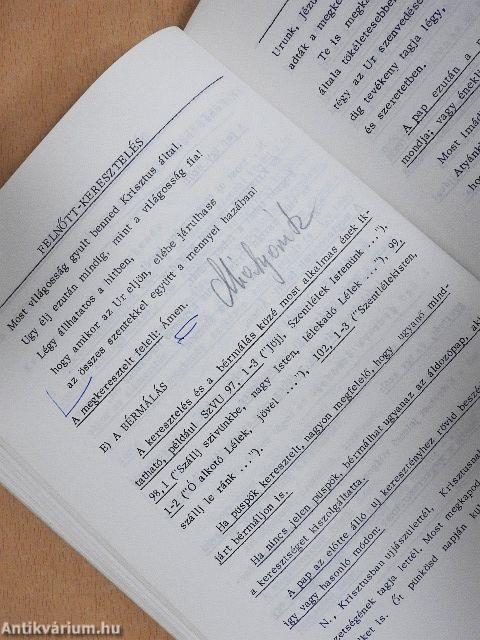 FELNŐTT-KERESZTELÉS
Most világosság gyúlt benned Krisztus által.
Úgy élj ezután mindig, mint a világosság fia!
Légy állhatatos a hitben,
hogy amikor az Ur eljön, elébe járulhass
az összes szentekkel együtt a mennyei hazában!
A megkeresztelt felelt: Ámen.
E) A BÉRMÁLÁS
A keresztelés és a bérmálás közé most alkalmas ének ik-
tatható, például SzVU 97, 1-3 ("Jöjj, Szentlélek Istenünk ..."),
98,1 ("Szállj szivünkbe, nagy Isten, lélekadó Lélek ..."), 99,
1-2 ("Ó alkotó Lélek, jövel ..."), 102, 1-3 ("Szentlélekisten,
szállj le ránk ...").
Ha püspök keresztelt, nagyon megfelelő, hogy ugyanő mind-
járt bérmáljon is.
Ha nincs jelen püspök, bérmálhat ugyanaz az áldozópap, aki
a keresztséget kiszolgáltatta.
A pap az előtte álló uj keresztényhez rövid beszéd
így vagy hasonló módon:
N., Krisztusban ujjászülettél, Krisztusnak
zetségének tagja lettél. Most megkapod
ket is. Őt pünkösd napján kül
Urunk, Jézu
adták a megke
Te is megka
általa tökéletesebben
tégy az Ur szenvedésé
dig tevékeny tagja légy,
és szeretetben.
A pap ezután a
mondja; vagy énekli
Most imád
Atyánk
ho
Antikvárium.hu